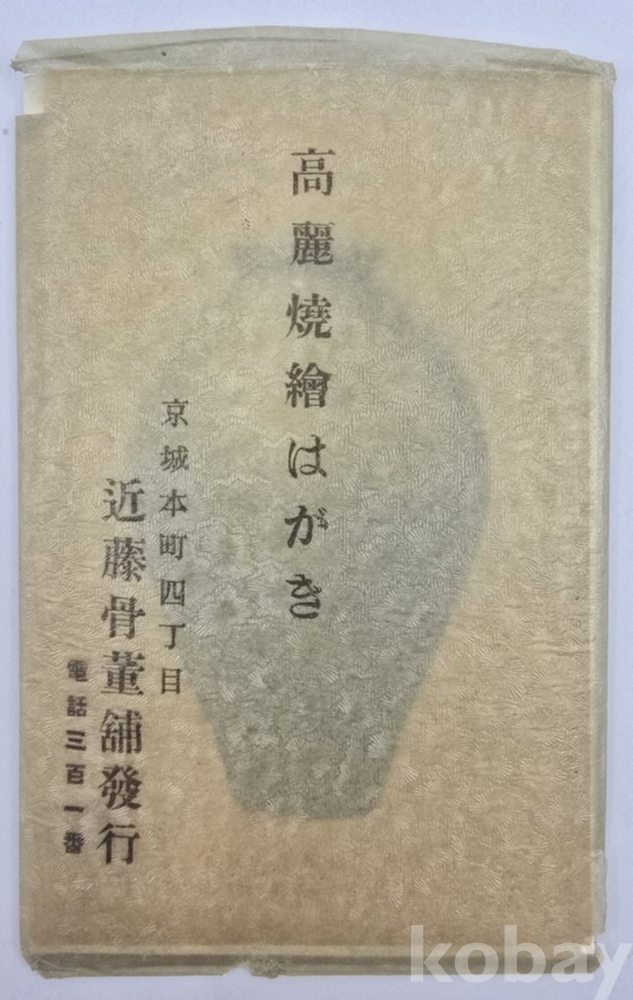 高麗燒繪はがき
京城本町四丁目
近藤骨董舖發行
電話三百一番
kobay